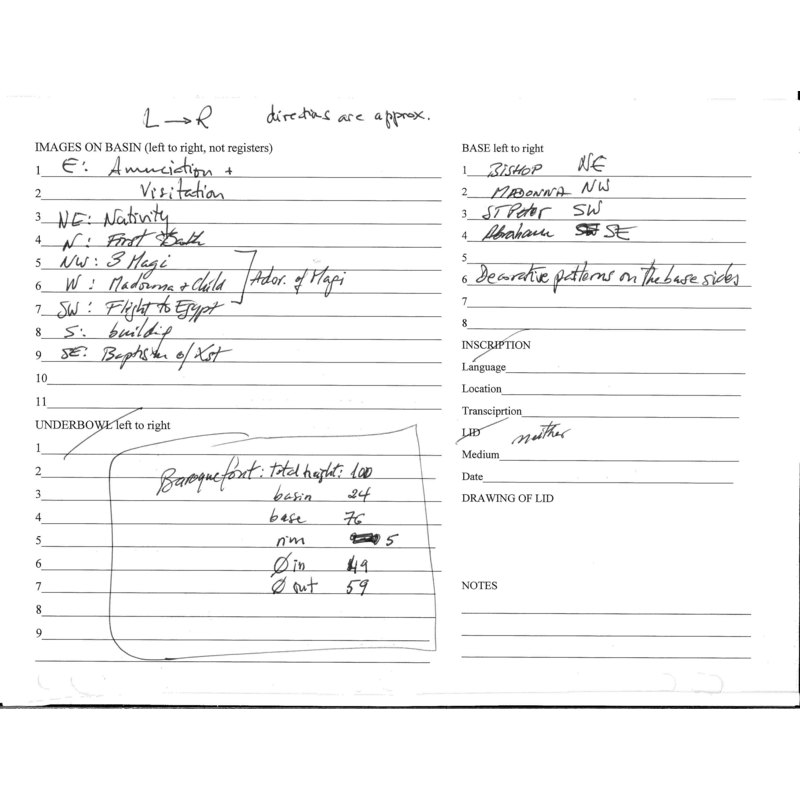 L → R directions are approx.
IMAGES ON BASIN (left to right, not registers)
1 E: Annunciation +
2 Visitation
3 NE: Nativity
4 N: First Bath
5 NW: 3 Magi
6 W: Madonna + Child Ador. of Magi
7 SW: Flight to Egypt
8 S: building
9 SE: Baptism of Xst
10
11
UNDERBOWL left to right
1
2 Baroque font: total height: 100
3 basin 24
4 base 76
5 rim 5
6 Ø in 49
7 Ø out 59
8
9
BASE left to right
1 BISHOP NE
2 MADONNA NW
3 ST Peter SW
4 Abraham SE
5
6 Decorative patterns on the base sides
7
8
INSCRIPTION
Language
Location
Transciprtion
LID neither
Medium
Date
DRAWING OF LID
NOTES